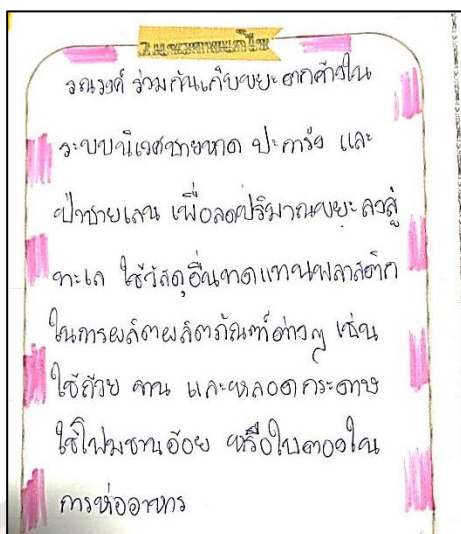 2.แนวทางแก้ไข
รณรงค์ ร่วมกันเก็บขยะตกค้างใน
ระบบนิเวศชายหาด ปะการัง และ
ป่าชายเลน เพื่อลดปริมาณขยะลงสู่
ทะเล ใช้วัสดุอื่นทดแทนพลาสติก
ในการผลิตผลิตภัณฑ์ต่างๆ เช่น
ใช้ถ้วย จาน และหลอดกระดาษ
ใช้โฟมชานอ้อย หรือใบตองใน
การห่ออาหาร